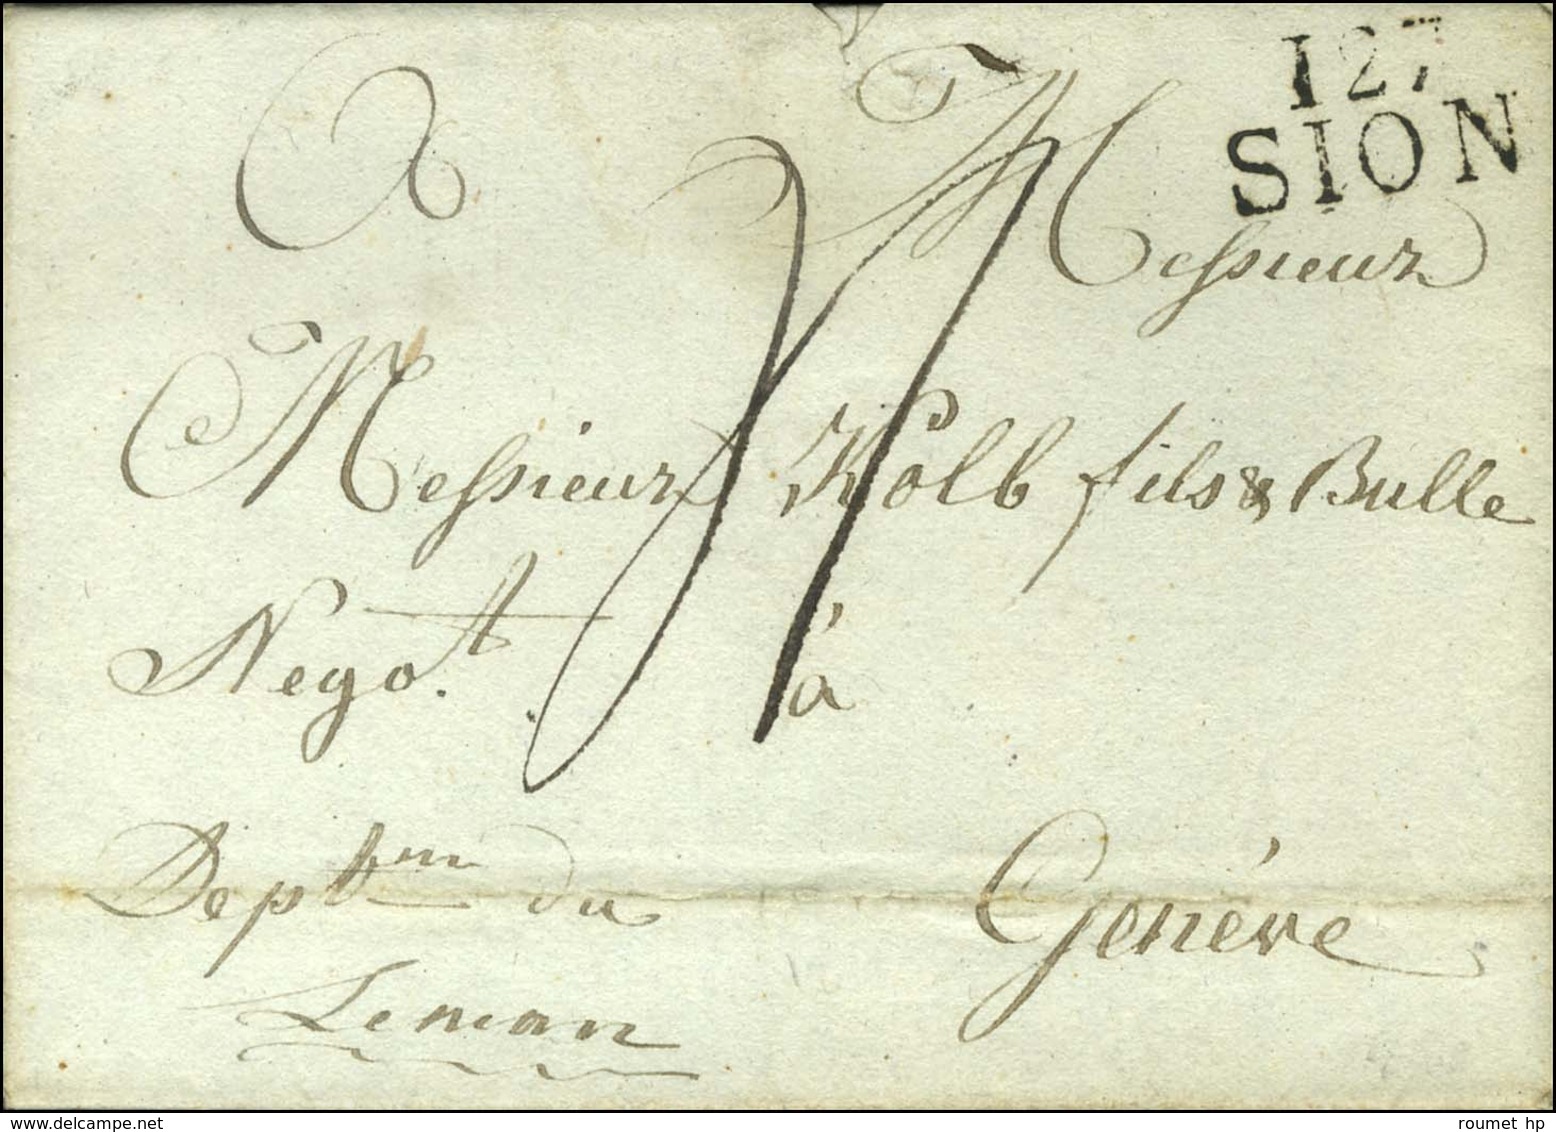 127
SION
A Messieur
Messieur Kolb fils & Bulle
Negot.
à
Deptem du Genéve
Leman
delcampe.net
roumet hp